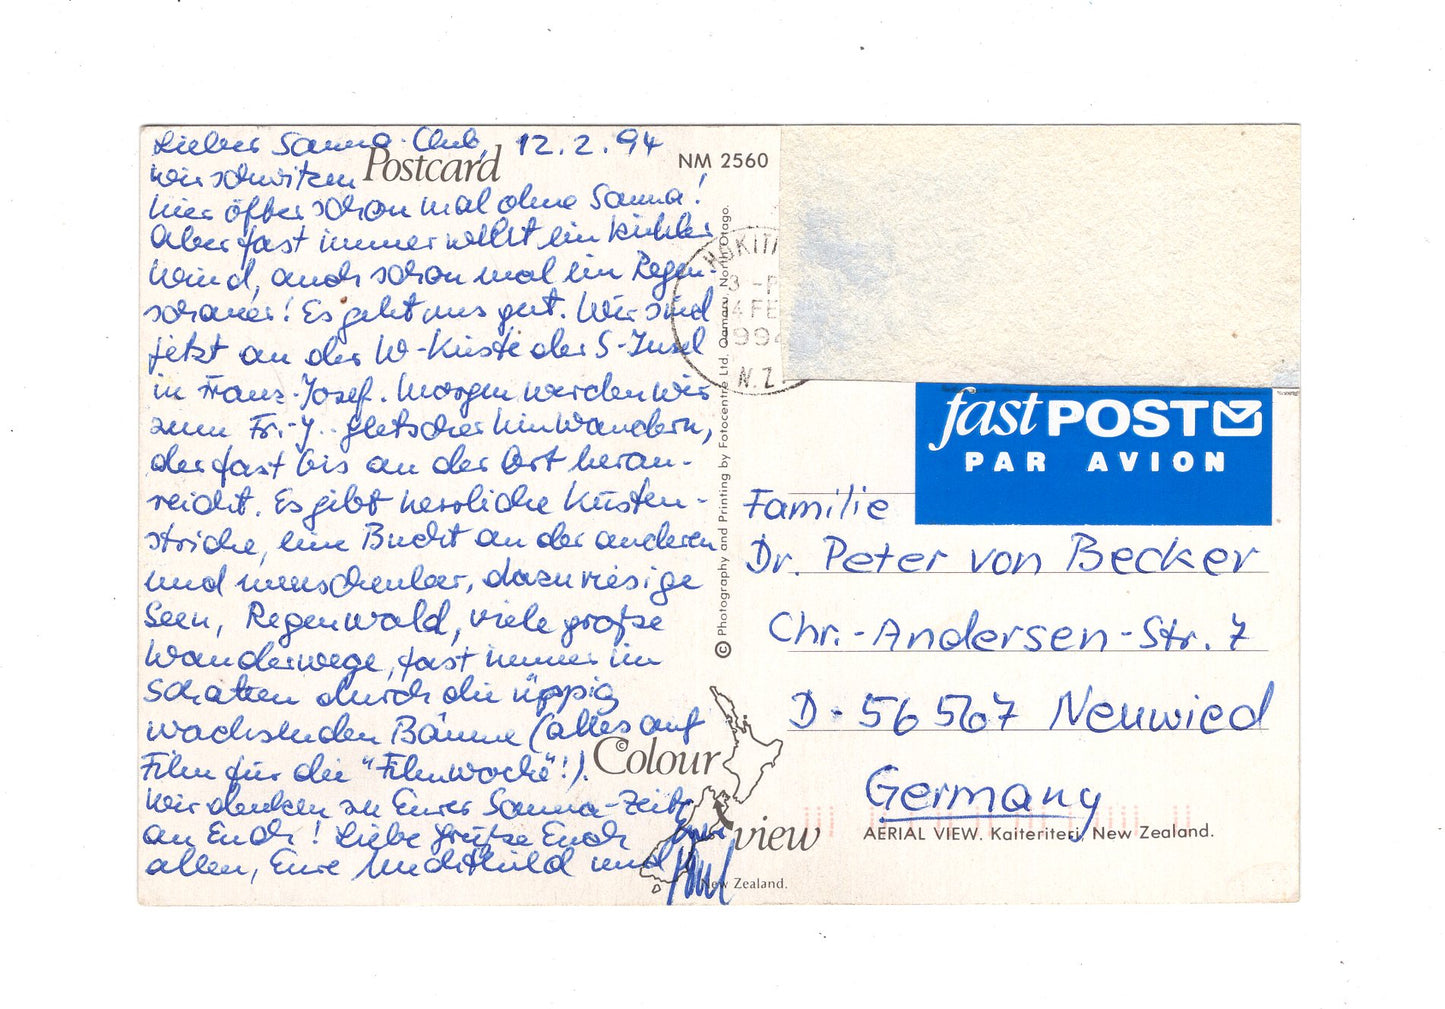 Lieber Sauna-Club, 12.2.94
Postcard
NM 2560
wir schwitzen
hier öfter schon mal ohne Sauna!
Aber fast immer weht ein kühler
Wind, auch schon mal ein Regen-
schauer! Es geht uns gut. Wir sind
jetzt an der W-Küste der S-Insel
in Franz-Josef. Morgen werden wir
zum Fr.-J.-gletscher hinwandern,
der fast bis an den Ort heran-
reicht. Es gibt herrliche Küsten-
striche, eine Bucht an der anderen
und menschenleer, dazu riesige
Seen, Regenwald, viele große
Wanderwege, fast immer im
Schatten durch die üppig
wachsenden Bäume (alles auf
Film für die "Filmwoche"!).
Wir denken zu Eurer Sauna-Zeit
an Euch! Liebe Grüße Euch
allen, Eure Mechthild und
HOKITI
3-P
4 FE
1994
N.Z.
© Photography and Printing by Fotocentre Ltd. Oamaru, North Otago.
fast POST
PAR AVION
Familie
Dr. Peter von Becker
Chr.-Andersen-Str. 7
D-56567 Neuwied
Germany
AERIAL VIEW. Kaiteriteri, New Zealand.
© Colour
view
New Zealand.